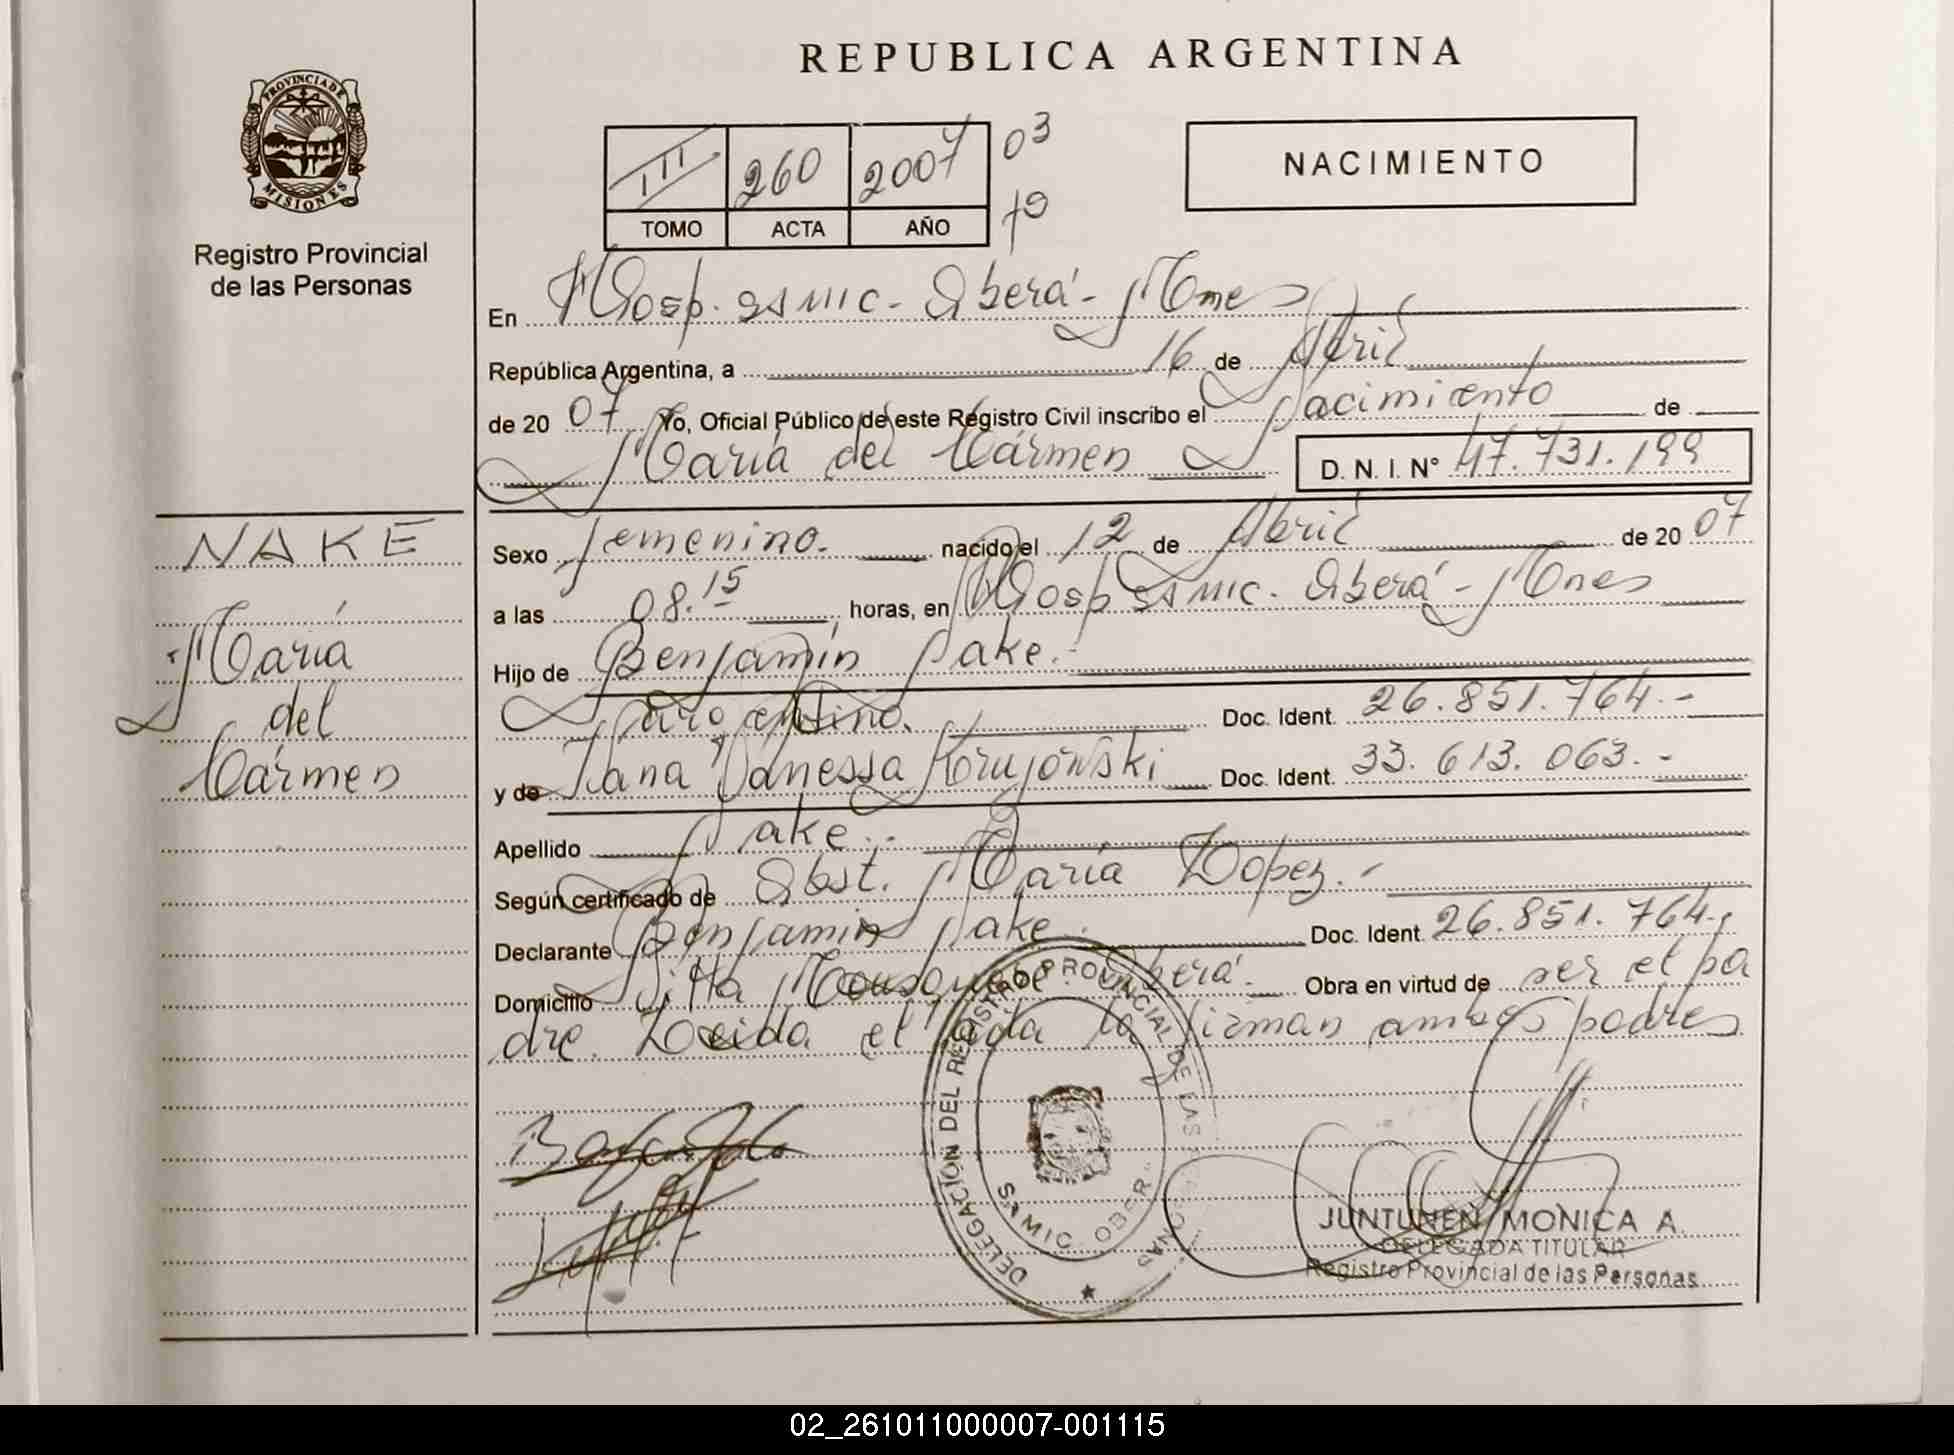 REPUBLICA ARGENTINA
PROVINCIA DE MISIONES
Registro Provincial
de las Personas
III 260 2007 03
TOMO ACTA AÑO
NACIMIENTO
En Hosp. SAMIC - Oberá - Mnes
República Argentina, a 16 de Abril
de 20 07 Yo, Oficial Público de este Registro Civil inscribo el Nacimiento de
María del Cármen D. N. I. N° 47.731.199
NAKE
María
del
Cármen
Sexo femenino. nacido el 12 de Abril de 20 07
a las 08.15 horas, en Hosp SAMIC. Oberá - Mnes
Hijo de Benjamín Nake.-
Argentino. Doc. Ident. 26.851.764.-
y de Vanessa Doc. Ident. 33.613.063.-
Apellido Nake.-
Según certificado de Obst. María Lopez.-
Declarante Benjamin Nake. Doc. Ident. 26.851.764.
Domicilio Villa Oberá. Obra en virtud de ser el pa
dre. Leida el acta la firman ambos padres
DELEGACION DEL REGISTRO PROVINCIAL DE LAS PERSONAS
SAMIC OBERA
JUNTUNEN MONICA A.
DELEGADA TITULAR
Registro Provincial de las Personas
02_261011000007-001115